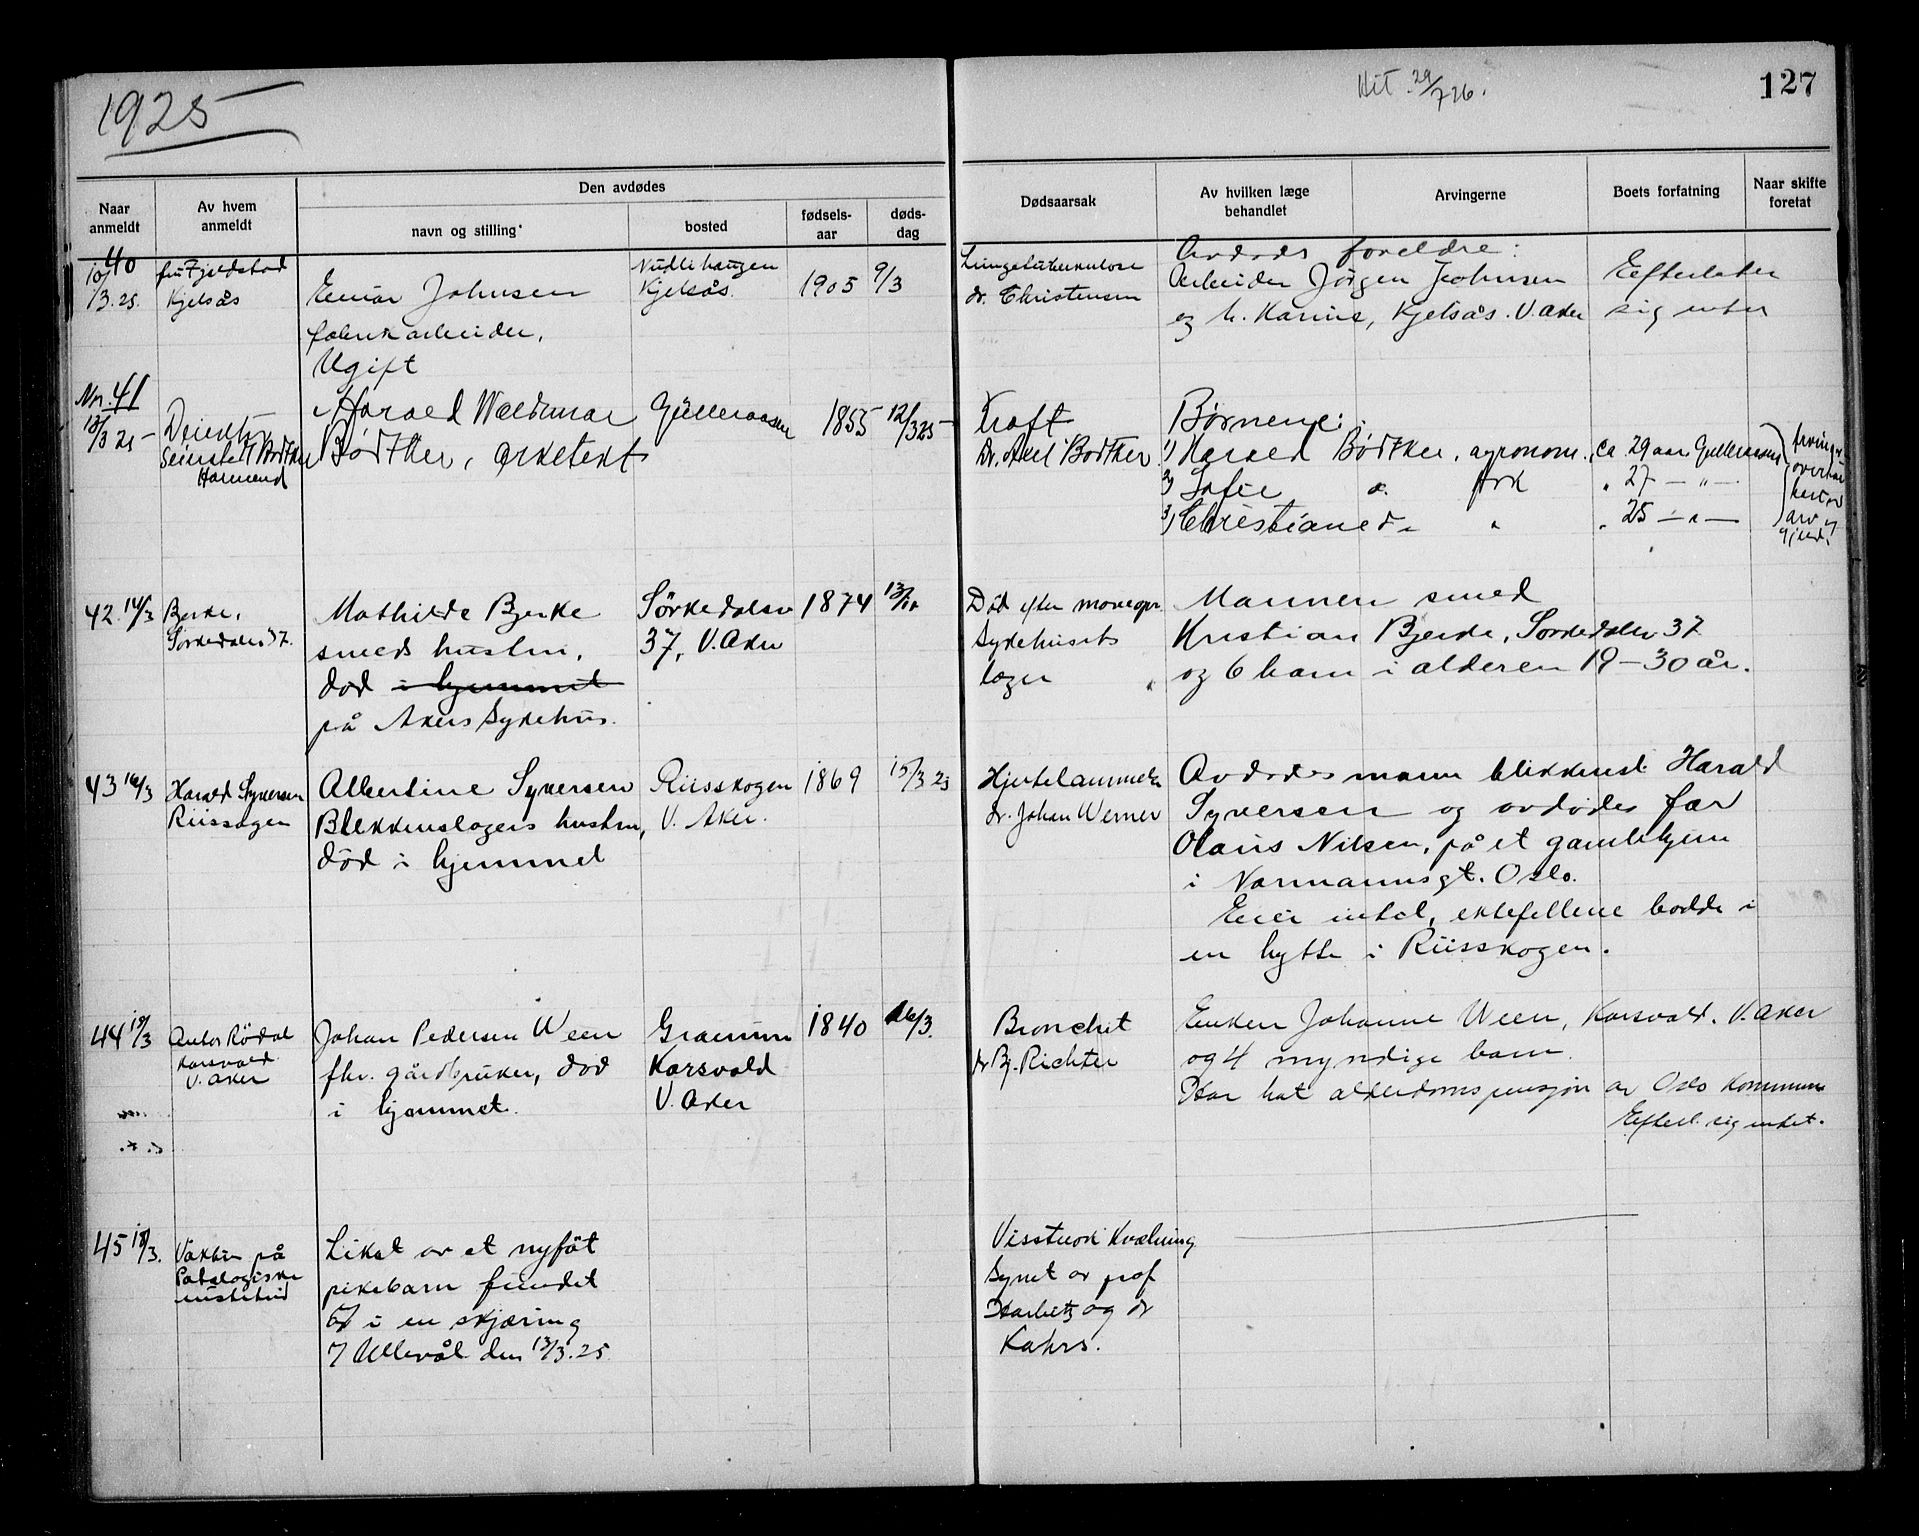 1925
Hit 29/7 26.
127
Naar anmeldt
Av hvem anmeldt
Den avdødes
navn og stilling
bosted
fødsels-aar
døds-dag
Dødsaarsak
Av hvilken læge behandlet
Arvingerne
Boets forfatning
Naar skifte foretat
40
10/3.25.
fru Fjeldstad
Kjelsås
Einar Johnsen
fabrikarbeider.
Ugift
Kjelsås.
1905
9/3
Lungetuberkulose
dr. Christensen
Avdødes foreldre:
Arbeider Jørgen Johnsen
og h. Karine, Kjelsås. V. Aker
Efterlater
sig intet
Nr. 41
13/3 25
Bødtker
Harald Waldemar
Bødtker, arkitekt
Gulleraasen
1855
12/3 25
Kræft
Dr. Axel Bødtker
Børnene:
1) Harald Bødtker, agronom, ca. 29 aar Gulleraasen
2) Sofie d. frk „ 27 — „ —
3) Christiane d. „ „ 25 — „ —
arv og
gjeld.
42. 14/3
Bjerke,
Sørkedalsv 37.
Mathilde Bjerke
smeds hustru,
død i hjemmet
på Akers Sykehus.
Sørkedalsv
37, V. Aker
1874
Død efter maveopr.
Sykehusets
læger
Mannen smed
Kristian Bjerke, Sørkedalsv 37
og 6 barn i alderen 19–30 år.
43 16/3
Harald Syversen
Riisskogen
Albertine Syversen
Blikkenslagers hustru,
død i hjemmet
Riisskogen
V. Aker.
1869
15/3 25
Hjertelammelse
dr. Johan Werner
Avdødes mann blikkensl. Harald
Syversen og avdødes far
Olaus Nilsen, på et gamlehjem
i Normannsgt. Oslo.
Eier intet, ektefellene bodde i
en hytte i Riisskogen.
44 18/3
Anton Rødal
Korsvold
V. Aker
Johan Pedersen Ween
fhv. gårdbruker, død
i hjemmet.
Korsvold
V. Aker
1840
16/3.
Bronchit
dr Bj. Richter
Enken Johanne Ween, Korsvold. V. Aker
og 4 myndige barn.
Har hat alderdomspensjon av Oslo kommune
Efterl. sig intet.
45 18/3.
Vakten på
Patologiske
institut
Liket av et nyføt
pikebarn fundet
i en skjæring
Ullevål den 13/3.25.
Kvælning
Synet av prof
Harbitz og dr
Kahrs.